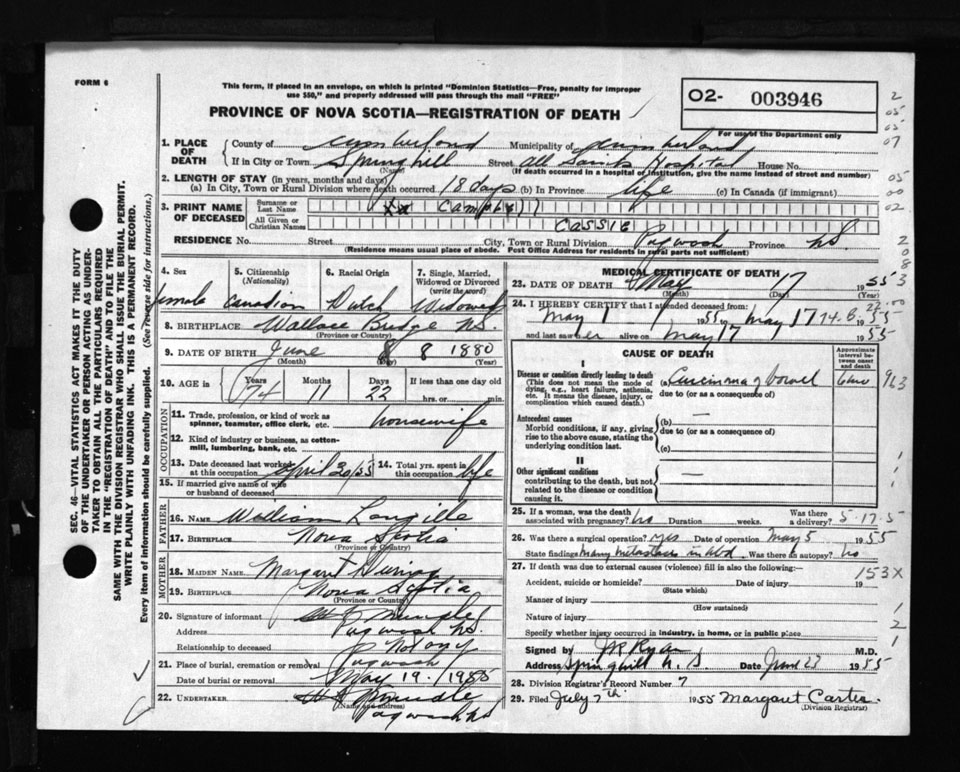 FORM 6
This form, if placed in an envelope, on which is printed "Dominion Statistics—Free, penalty for improper
use $50," and properly addressed will pass through the mail "FREE"
PROVINCE OF NOVA SCOTIA—REGISTRATION OF DEATH
O2- 003946
For use of the Department only
1. PLACE OF DEATH
County of Cumberland Municipality of Cumberland
If in City or Town Springhill Street All Saints Hospital House No.
(Name) (If death occurred in a hospital or institution, give the name instead of street and number)
2. LENGTH OF STAY (in years, months and days)
(a) In City, Town or Rural Division where death occurred 18 days (b) In Province life (c) In Canada (if immigrant)
3. PRINT NAME OF DECEASED
Surname or Last Name Campbell
All Given or Christian Names CASSIE
RESIDENCE No. Street City, Town or Rural Division Pugwash Province NS
(Residence means usual place of abode. Post Office Address for residents in rural parts not sufficient)
4. Sex female
5. Citizenship (Nationality) Canadian
6. Racial Origin Dutch
7. Single, Married, Widowed or Divorced (write the word) Widowed
8. BIRTHPLACE Wallace Bridge NS.
(Province or Country)
9. DATE OF BIRTH June 8 1880
(Month) (Day) (Year)
10. AGE in Years 74 Months 11 Days 22 If less than one day old hrs. or min.
OCCUPATION
11. Trade, profession, or kind of work as spinner, teamster, office clerk, etc. housewife
12. Kind of industry or business, as cotton-mill, lumbering, bank, etc.
13. Date deceased last worked at this occupation April 30/55 14. Total yrs. spent in this occupation life
15. If married give name of wife or husband of deceased
FATHER
16. NAME William Langille
17. BIRTHPLACE Nova Scotia
(Province or Country)
MOTHER
18. MAIDEN NAME Margaret
19. BIRTHPLACE Nova Scotia
(Province or Country)
20. Signature of informant
Address Pugwash NS.
Relationship to deceased Not any
21. Place of burial, cremation or removal Pugwash
Date of burial or removal May 19. 1955
22. UNDERTAKER
(Name and address)
Pugwash NS
MEDICAL CERTIFICATE OF DEATH
23. DATE OF DEATH May 17 1955
(Month) (Day) (Year)
24. I HEREBY CERTIFY that I attended deceased from:
May 1 1955 to May 17 1955
and last saw her alive on May 17 1955
CAUSE OF DEATH
Approximate interval between onset and death
I
Disease or condition directly leading to death
(This does not mean the mode of dying, e.g., heart failure, asthenia, etc. It means the disease, injury, or complication which caused death.)
(a) Carcinoma of bowel
due to (or as a consequence of)
Antecedent causes
Morbid conditions, if any, giving rise to the above cause, stating the underlying condition last.
(b) —
due to (or as a consequence of)
(c)
II
Other significant conditions
contributing to the death, but not related to the disease or condition causing it.
—
25. If a woman, was the death associated with pregnancy? No Duration weeks. Was there a delivery?
26. Was there a surgical operation? yes Date of operation May 5 1955
State findings many metastases in abd. Was there an autopsy? No
27. If death was due to external causes (violence) fill in also the following:—
Accident, suicide or homicide? Date of injury 19
(State which)
Manner of injury
(How sustained)
Nature of injury
Specify whether injury occurred in industry, in home, or in public place
153X
Signed by J R Ryan M.D.
Address Springhill N. S. Date June 23 1955
28. Division Registrar's Record Number 7
29. Filed July 7th 1955 Margaret Carter
(Division Registrar)
SEC. 46—VITAL STATISTICS ACT MAKES IT THE DUTY
OF THE UNDERTAKER OR PERSON ACTING AS UNDER-
TAKER TO OBTAIN ALL THE PARTICULARS REQUIRED
IN THE "REGISTRATION OF DEATH" AND TO FILE THE
SAME WITH THE DIVISION REGISTRAR WHO SHALL ISSUE THE BURIAL PERMIT.
WRITE PLAINLY WITH UNFADING INK. THIS IS A PERMANENT RECORD.
Every item of information should be carefully supplied. (See reverse side for instructions.)